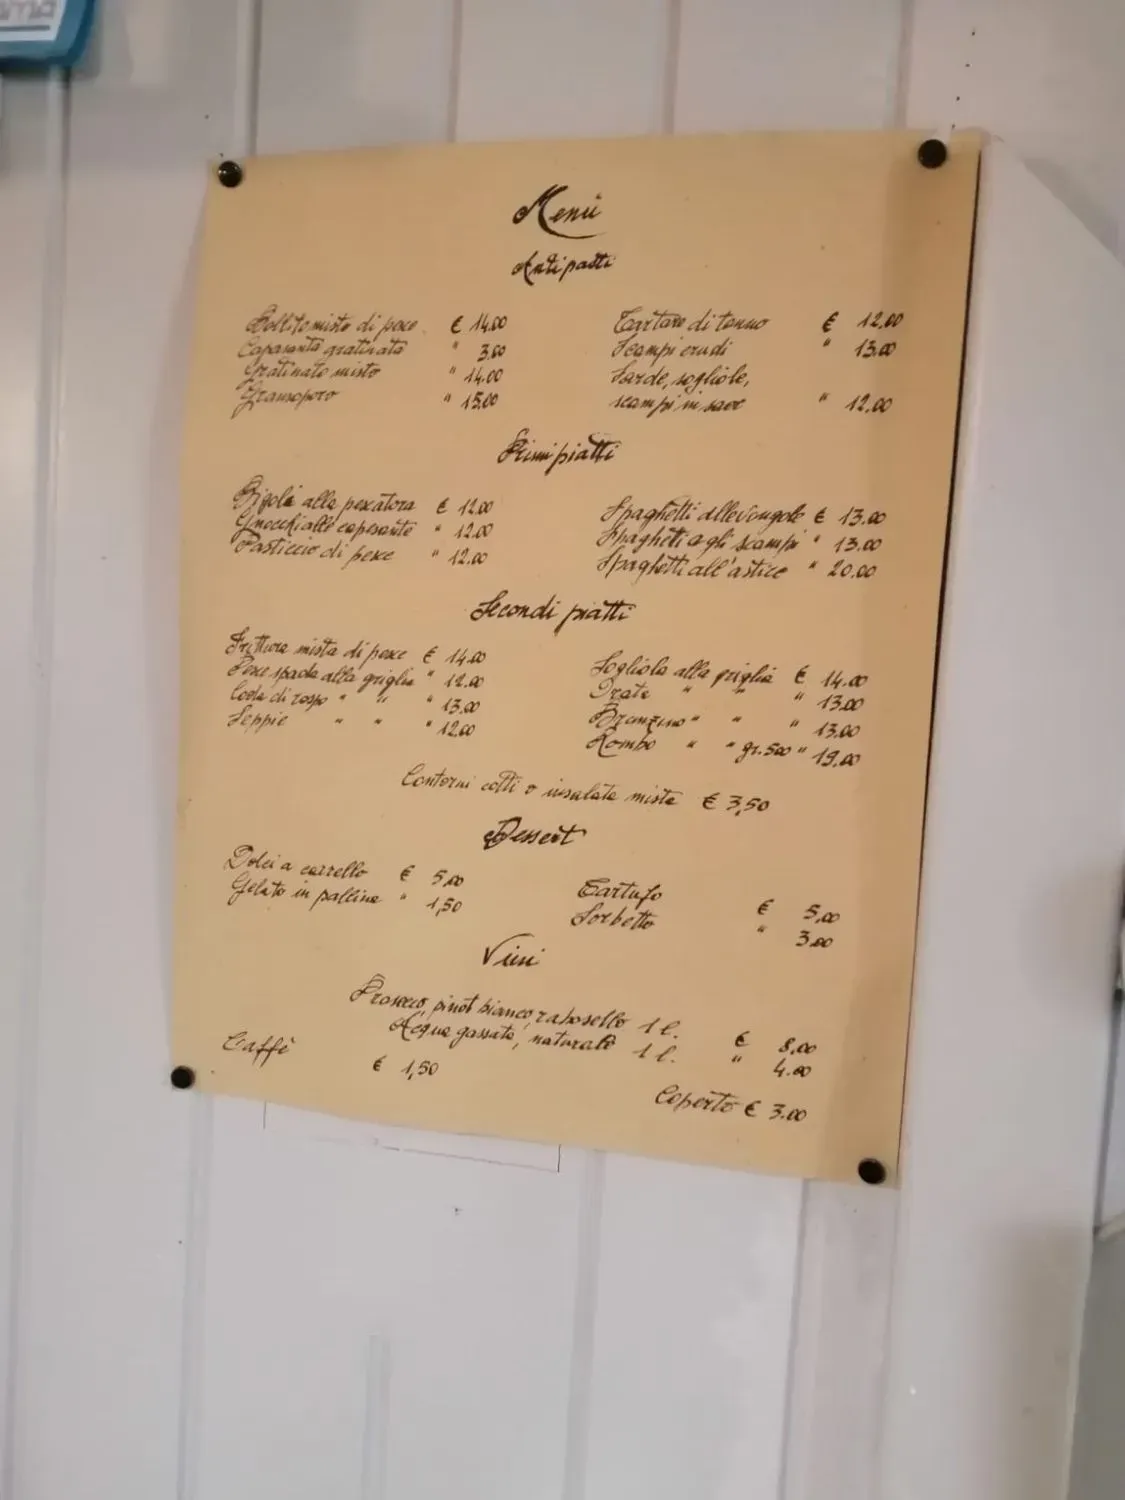 Menù
Antipasti
Bollito misto di pesce € 14.00
Capasanta gratinata " 3.00
Gratinato misto " 14.00
Gransoporo " 15.00
Tartare di tonno € 12.00
Scampi crudi " 13.00
Sarde, sogliole,
scampi in saor " 12.00
Primi piatti
Bigoli alla pescatora € 12.00
Gnocchi alle capesante " 12.00
Pasticcio di pesce " 12.00
Spaghetti alle vongole € 13.00
Spaghetti agli scampi " 13.00
Spaghetti all'astice " 20.00
Secondi piatti
Frittura mista di pesce € 14.00
Pesce spada alla griglia " 12.00
Coda di rospo " " " 13.00
Seppie " " " 12.00
Sogliola alla griglia € 14.00
Orate " " " 13.00
Branzino " " " 13.00
Rombo " " gr. 500 " 19.00
Contorni cotti o insalata mista € 3,50
Dessert
Dolci a carrello € 5,00
Gelato in pallina " 1,50
Tartufo € 5,00
Sorbetto " 3.00
Vini
Prosecco, pinot bianco, rabosello 1 l. € 8,00
Acqua gassata, naturale 1 l. " 4.00
Caffè € 1,50
Coperto € 3.00